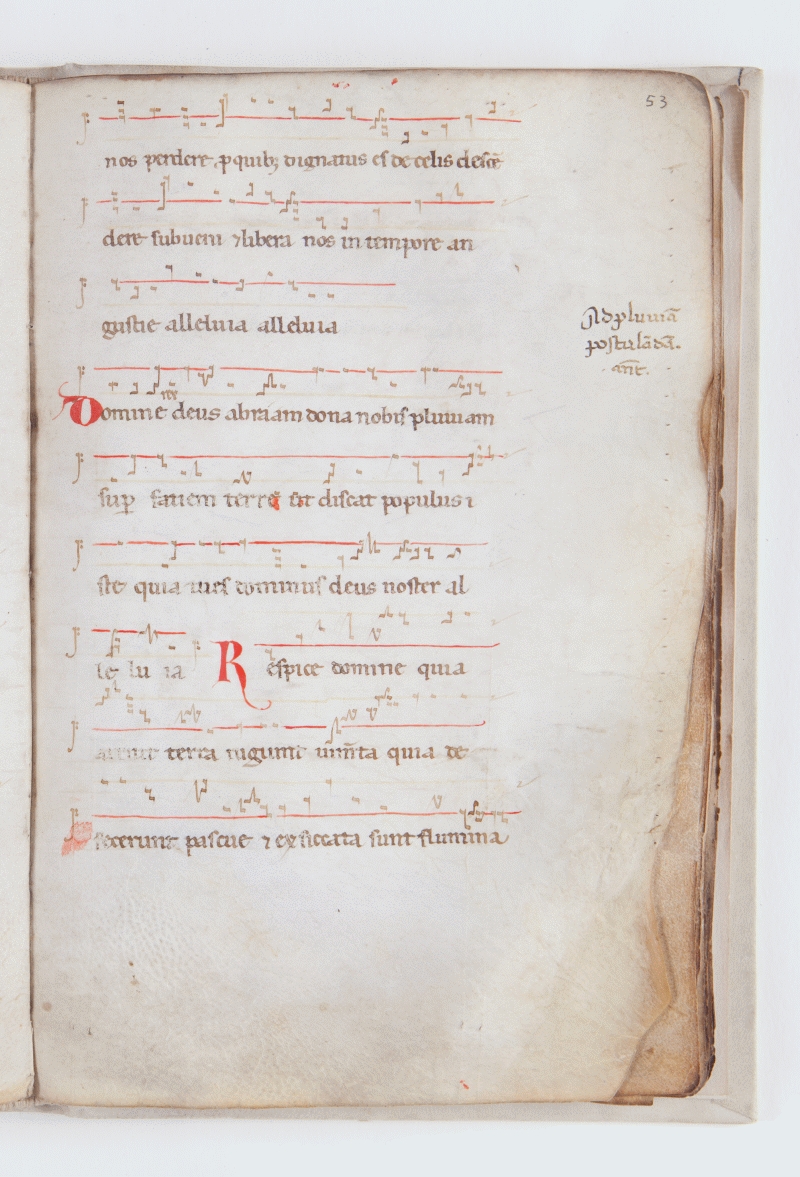 53
nos perdere ꝓ quibꝫ dignatus es de celis descē
dere subueni ⁊ libera nos in tempore an
gustie alleluia alleluia
Ad pluuiā
postulādā.
añt.
Domine deus abraam dona nobis pluuiam
suꝑ faciem terre ut discat populus i
ste quia tu es dominus deus noster al
le lu ia Respice domine quia
aruit terra rugiunt iumta quia de
fecerunt pascue ⁊ exsiccata sunt flumina